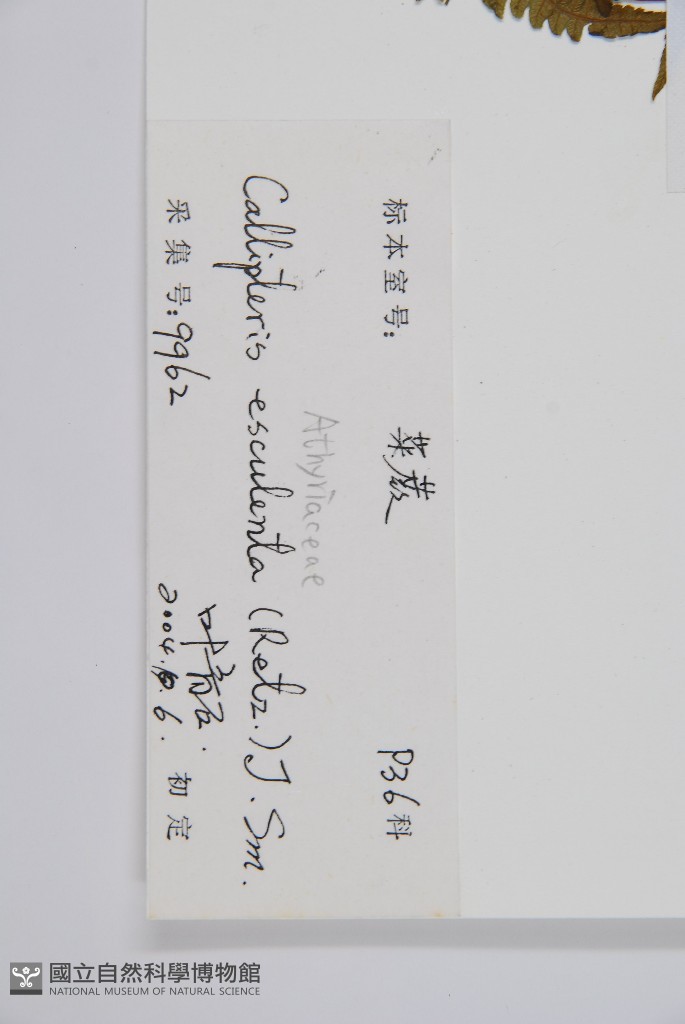 标本室号:
菜蕨 P36科
Athyriaceae
Callipteris esculenta (Retz.) J. Sm.
采集号: 9962
2004. 6.
初定
國立自然科學博物館
NATIONAL MUSEUM OF NATURAL SCIENCE